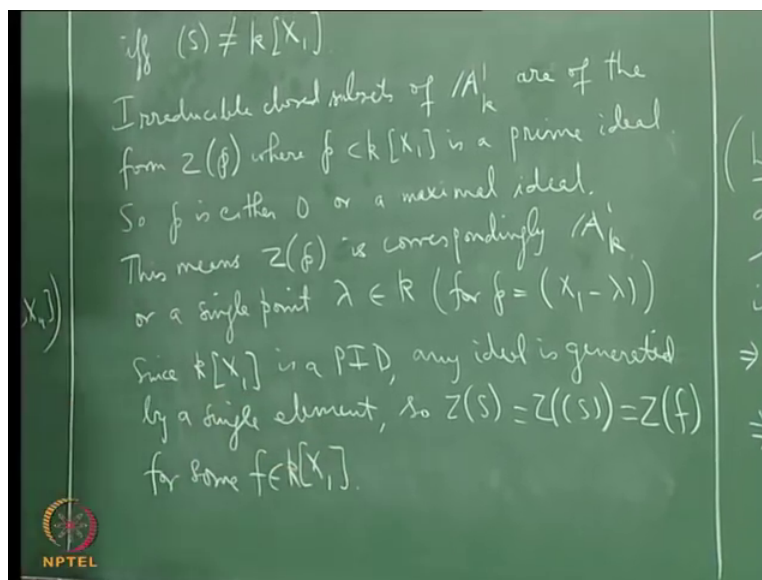 iff (S) ≠ k[X₁].
Irreducible closed subsets of 𝔸¹ₖ are of the
form Z(𝔭) where 𝔭 ⊂ k[X₁] is a prime ideal.
So 𝔭 is either 0 or a maximal ideal.
This means Z(𝔭) is correspondingly 𝔸¹ₖ
or a single point λ ∈ k (for 𝔭 = (X₁ - λ))
Since k[X₁] is a PID, any ideal is generated
by a single element, so Z(S) = Z((S)) = Z(f)
for some f ∈ k[X₁].
,Xₙ])
⇒
⇒
NPTEL